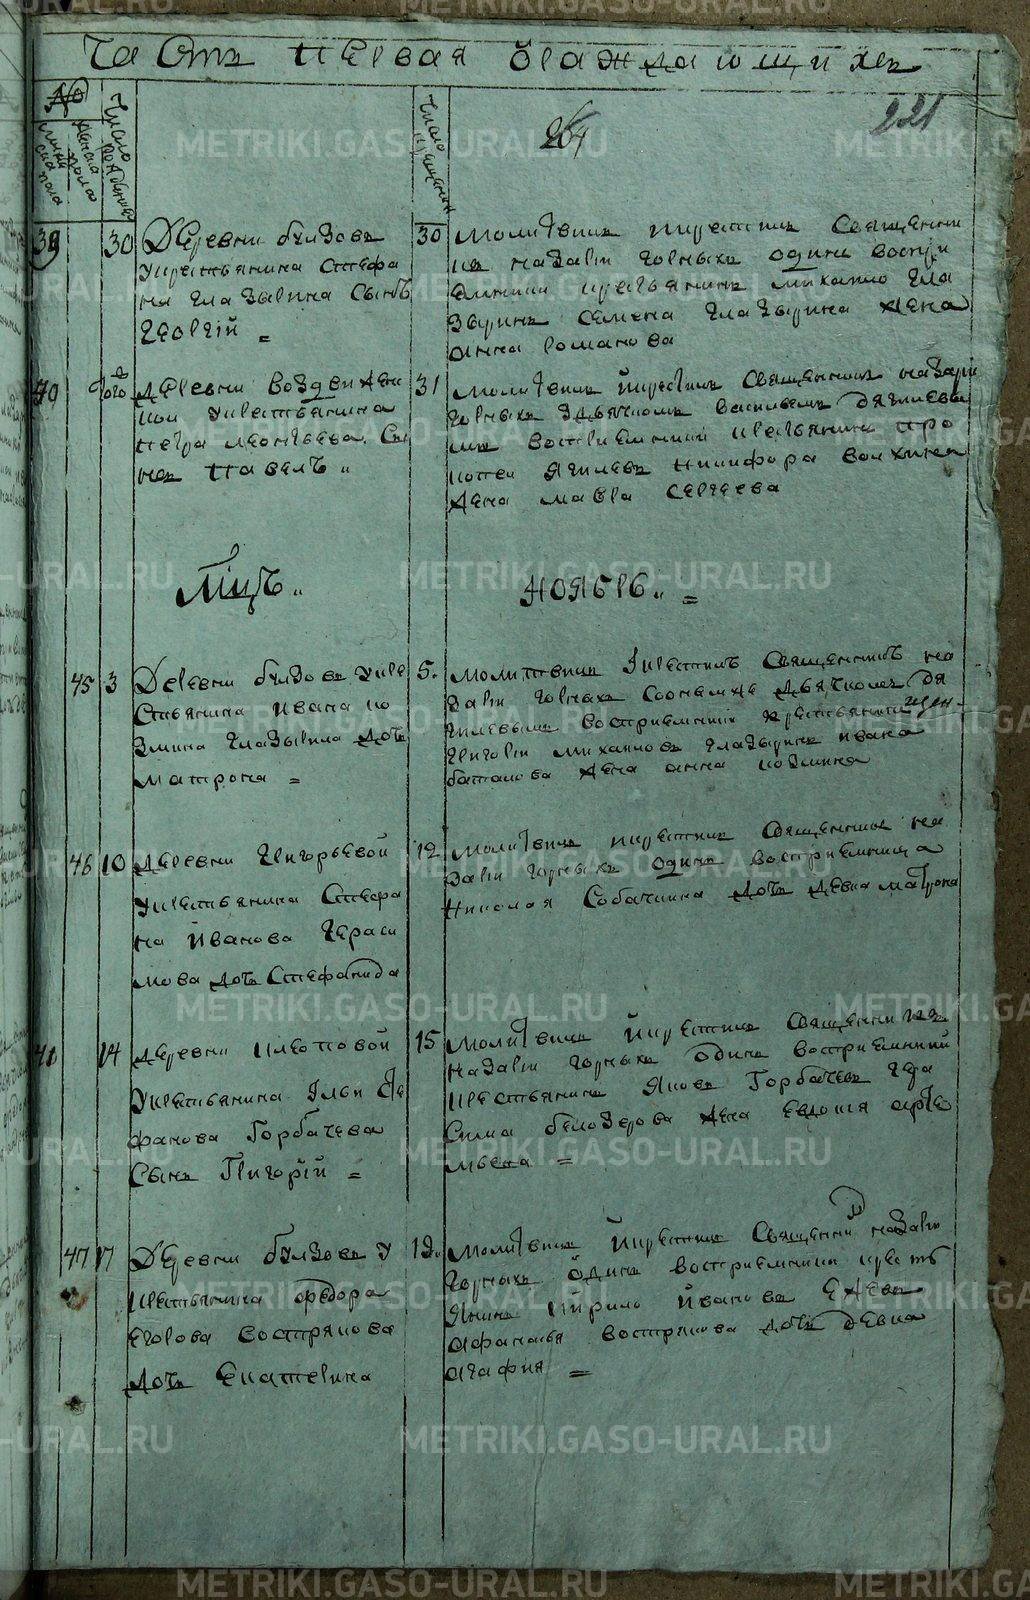 Часть первая ораждающихъ
221
№
мужеска пола
женска пола
Число рожденія
Число крещенія
39 30 Деревни бълзовъ
крестьянина Стефа
на глазырина Сынъ
Георгій =
30 молитвилъ икрестилъ Священни
къ назарій горныхъ одинъ воспри
емники крестьянинъ михаило гла
зыринъ семена глазырина жена
анна романова
40 деревни воздвижен
кои крестьянина
петра леонтьева Сы
нъ павелъ „
31 молитвилъ йкрестилъ Священникъ назарій
горныхъ здьячкомъ василиемъ
мъ восприемники крестьянинъ про
копеи никифора
жена мавра сергеева
Мцъ „ ноябрь „ =
45 3 Деревни бълзовъ кре
стьянина ивана ко
змина глазырина дочь
матрона =
5. молитвилъ Iкрестилъ Священникъ на
зарій горныхъ сооными дьячкомъ дя
гилевымъ восприемники крестьянинъ
григорій михаиловъ глазыринъ ивана
баталова жена анна козмина
46 10 деревни Григорьевой
крестьянина Стефа
на Иванова Гераси
мова дочь Стефанида
12 молитвилъ икрестилъ Священникъ на
зарій горныхъ одинъ восприемница
николая Собачкина дочь девка матрона
41 14 деревни клеоповой
крестьянина Ильи Сте
фанова Горбачева
Сынъ Григорій =
15 молитвилъ йкрестилъ Священникъ
назарій горныхъ одинъ восприемники
крестьянинъ Яковъ Горбачевъ гера
сима белозерова жена евдокия арте
мьева =
47 17 Деревни бълзовъ к
рестьянина федора
егорова вострякова
дочь Екатерина
19. молитвилъ йкрестилъ Священникъ назарій
горныхъ одинъ восприемники кресть
янинъ кирило йвановъ
афанасья вострякова дочь девка
агафия =
METRIKI.GASO-URAL.RU